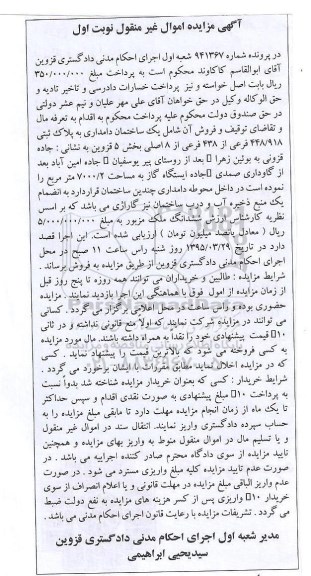 آگهی مزایده اموال غیر منقول نوبت اول
در پرونده شماره ۹۴۱۳۶۷ شعبه اول اجرای احکام مدنی دادگستری قزوین
آقای ابوالقاسم کاکاوند محکوم است به پرداخت مبلغ ۳۵۰/۰۰۰/۰۰۰
ریال بابت اصل خواسته و نیز پرداخت خسارات دادرسی و تاخیر تادیه و
حق الوکاله وکیل در حق خواهان آقای علی مهر علیان و نیم عشر دولتی
در حق صندوق دولت محکوم علیه پرداخت محکوم به اقدام به تعرفه مال
و تقاضای توقیف و فروش آن شامل یک ساختمان دامداری به پلاک ثبتی
۴۴۸/۹۱۸ فرعی از ۴۳۸ فرعی از ۸ اصلی بخش ۵ قزوین به نشانی : جاده
قزوین به بوئین زهرا بعد از روستای پیر یوسفیان جاده امین آباد بعد
از گاوداری صمدی جاده ایستگاه گاز به مساحت ۷۰۰۰/۲ متر مربع را
نموده است در داخل محوطه دامداری چندین ساختمان قراردارد به انضمام
یک منبع ذخیره آب و درب ساختمان نیز گاراژی می باشد که بر اسس
نظریه کارشناس ارزش ششدانگ ملک مزبور به مبلغ ۵/۰۰۰/۰۰۰/۰۰۰
ریال ( معادل پانصد میلیون تومان ) ارزیابی شده است. این اجرا قصد
دارد در تاریخ ۱۳۹۵/۰۳/۲۹ روز شنبه راس ساعت ۱۱ صبح در محل
اجرای احکام مدنی دادگستری قزوین از طریق مزایده به فروش برساند .
شرایط مزایده : طالبین و خریداران می توانند همه روزه تا پنج روز قبل
از زمان مزایده از امول فوق با هماهنگی این اجرا بازدید نمایند . مزایده
حضوری بوده و راس ساعت در محل اعلامی برگزار می گردد . کسانی
می توانند در مزایده شرکت نمایند که اولاً منع قانونی نداشته و در ثانی
۱۰ قیمت پیشنهادی خود را نقدا به همراه داشته باشند. مال مورد مزایده
به کسی فروخته می شود که بالاترین قیمت را پیشنهاد نماید . کسی
که در مزایده اخلال نماید مطابق مقررات با ایشان برخورد می گردد .
شرایط خریدار : کسی که بعنوان خریدار مزایده شناخته شد بدواً نسبت
به پرداخت ۱۰ مبلغ پیشنهادی به صورت نقدی اقدام و سپس حداکثر
تا یک ماه از زمان انجام مزایده مهلت دارد تا مابقی مبلغ مزایده را به
حساب سپرده دادگستری واریز نمایند. انتقال سند در اموال غیر منقول
و یا تسلیم مال در اموال منقول منوط به واریز بهای مزایده و همچنین
تایید مزایده از سوی دادگاه محترم صادر کننده اجراییه می باشد . در
صورت عدم تایید مزایده کلیه مبلغ واریزی مسترد می شود . در صورت
عدم واریز الباقی مبلغ مزایده در مهلت قانونی و یا اعلام انصراف از سوی
خریدار ۱۰ واریزی پس از کسر هزینه های مزایده به نفع دولت ضبط
می گردد . تشریفات مزایده با رعایت قانون اجرای احکام مدنی می باشد .
مدیر شعبه اول اجرای احکام مدنی دادگستری قزوین
سیدیحیی ابراهیمی